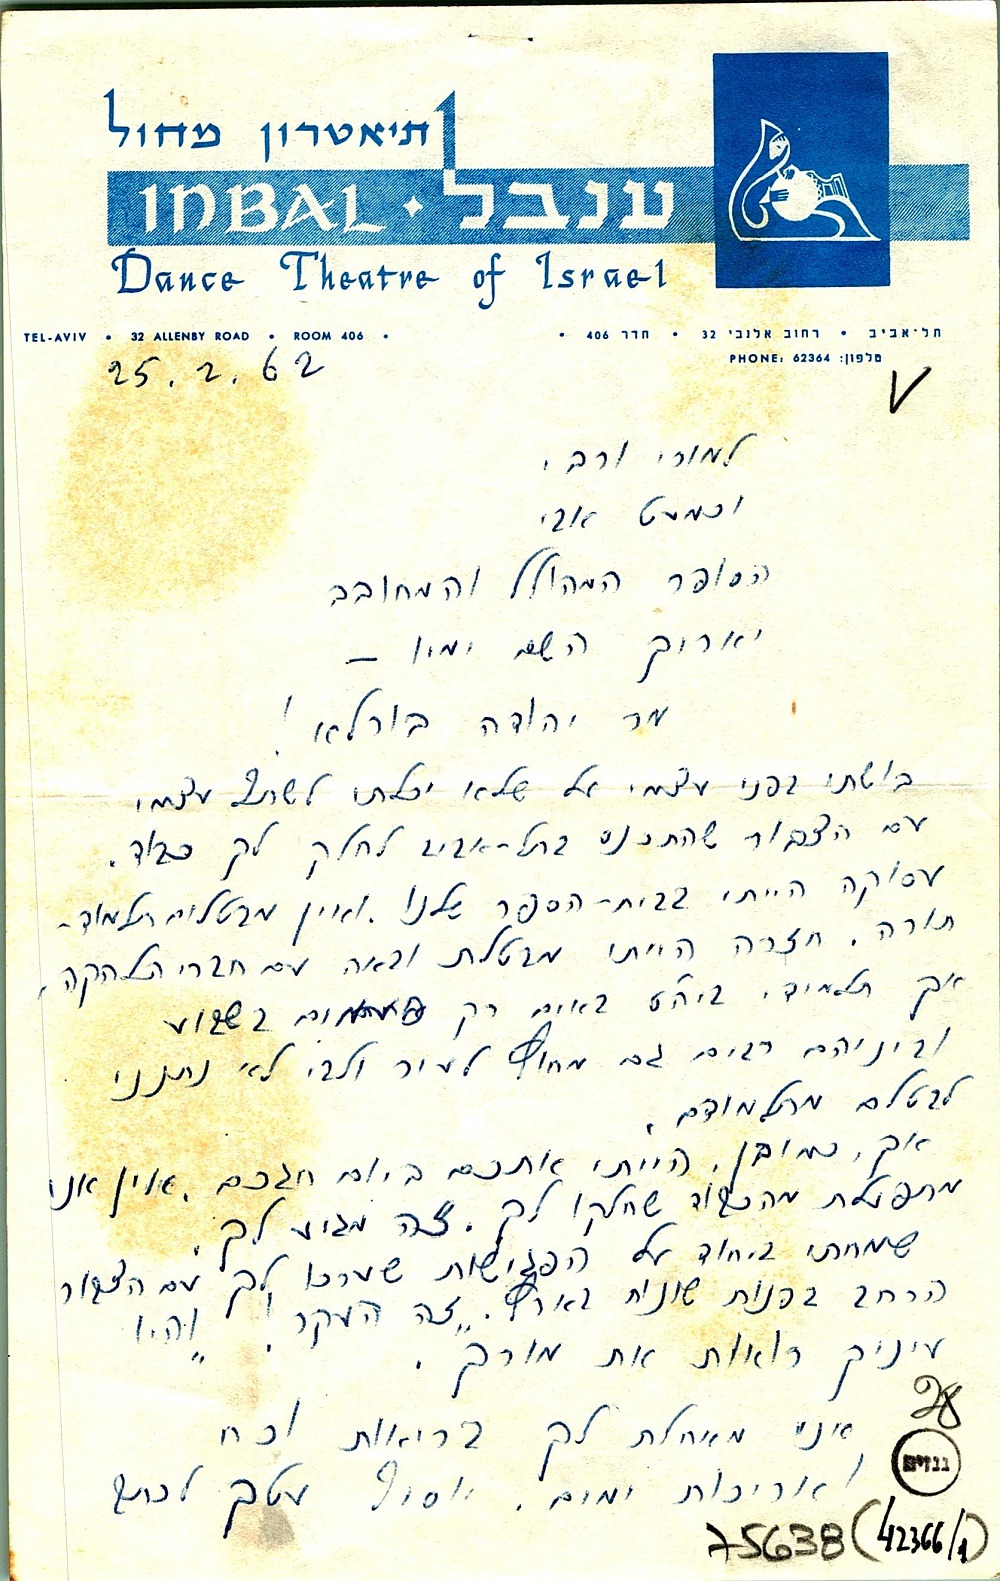 תיאטרון מחול
INBAL · ענבל
Dance Theatre of Israel
TEL-AVIV • 32 ALLENBY ROAD • ROOM 406 •
• תל־אביב • רחוב אלנבי 32 • חדר 406
PHONE: 62364 :טלפון
25.2.62
למורי ורבי,
וכמעט אבי
הסופר המהולל והמחובב
יאריך השם ימיו –
מר יהודה בורלא!
בושתי בפני עצמי על שלא יכלתי לשתף עצמי
עם הצבור שהתכנס בתל-אביב לחלק לך כבוד.
עסוקה הייתי בבית-הספר שלנו. ואין מבטלים תלמוד-
תורה. חזרה הייתי מבטלת ובאה עם חברי הלהקה,
אך תלמידי ביה"ס באים רק פעמיים בשבוע
וביניהם רבים גם מחוץ לעיר ולבי לא נתנני
לבטלם מתלמודם.
אך, כמובן, הייתי אתכם ביום חגכם. אין אני
מתפעלת מהכבוד שחלקו לך. זה מגיע לך.
שמחתי ביחוד על הפגישות שערכו לך עם הצבור
הרחב בפנות שונות בארץ. זה העקר! "והיו
עיניך רואות את מוריך".
אני מאחלת לך בריאות וכח
ואוריכות ימים. יוסיף עטך לכתוב
גנזים
75638 (42366/1)